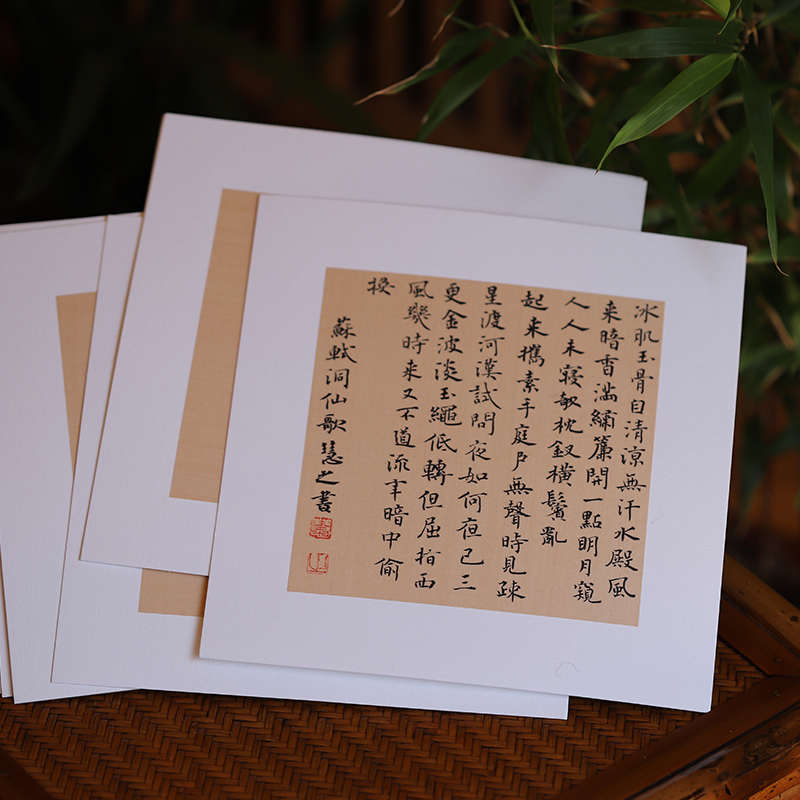 冰肌玉骨自清涼無汗水殿風
来暗香滿繡簾開一點明月窺
人人未寝欹枕釵橫鬢亂
起来攜素手庭户無聲時見疎
星渡河漢試問夜如何夜已三
更金波淡玉繩低轉但屈指西
風幾時来又不道流年暗中偷
換
蘇軾洞仙歌慧之書